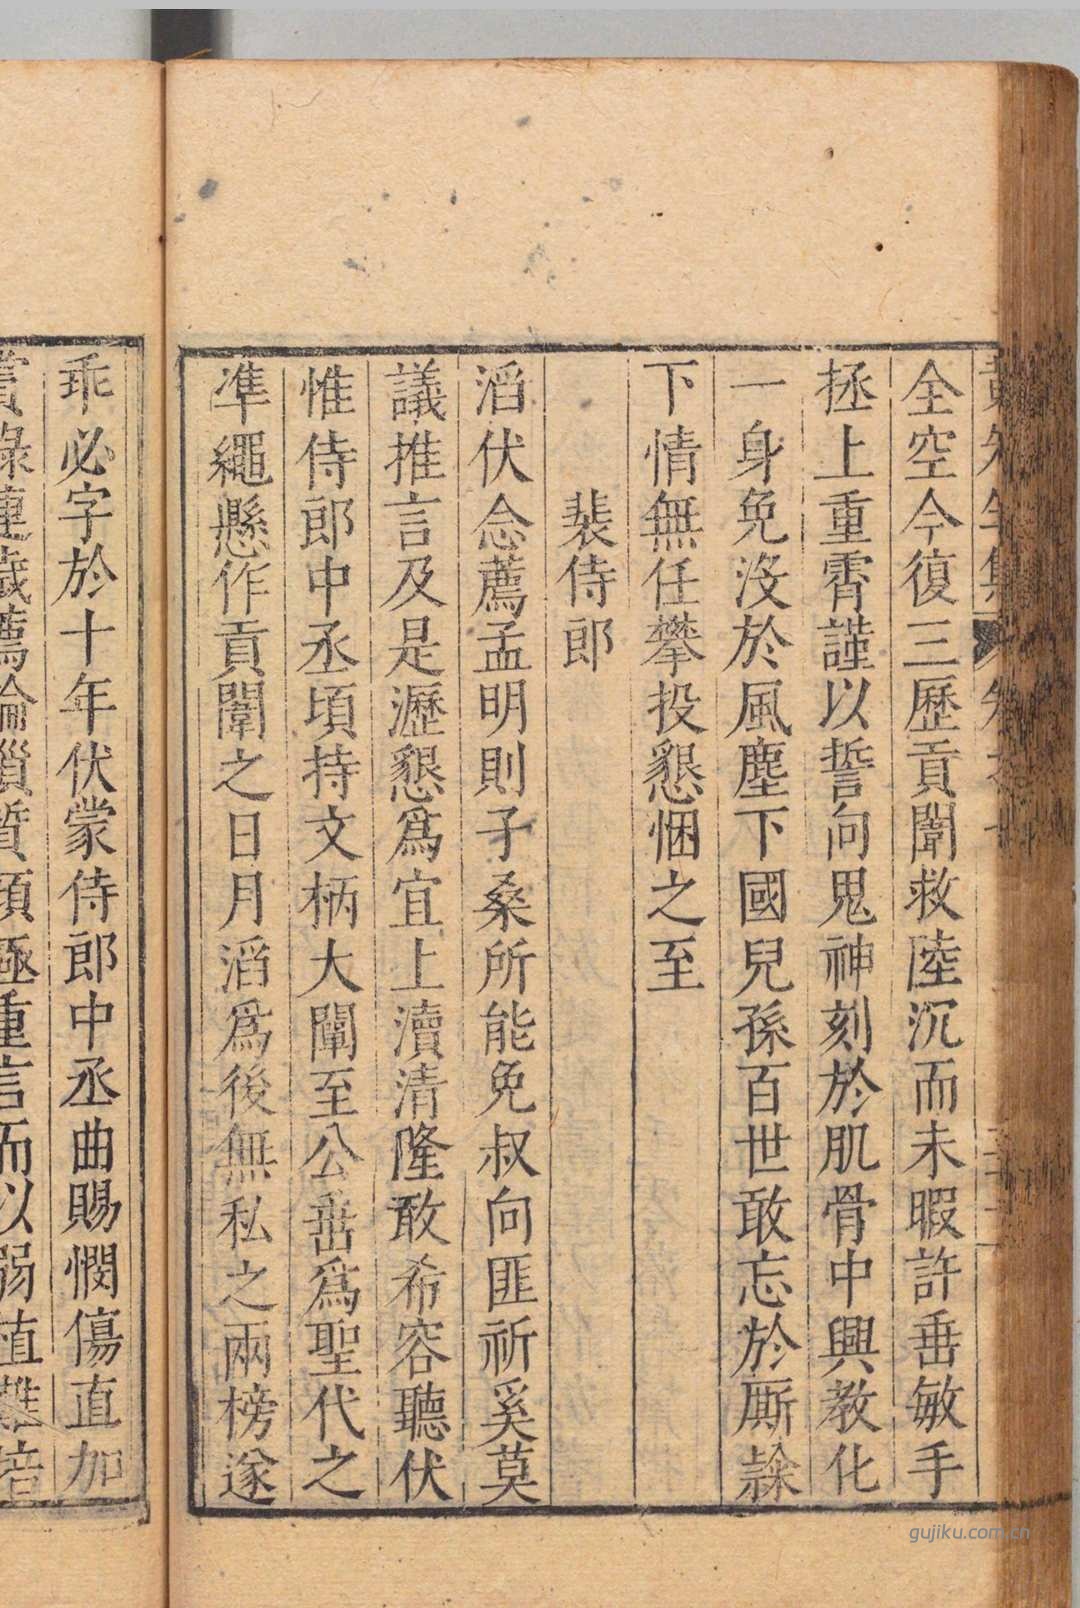 全空今復三歷貢闈救陸沉而未暇許垂敏手
拯上重霄謹以誓向鬼神刻於肌骨中興教化
一身免沒於風塵下國兒孫百世敢忘於厮隸
下情無任攀投懇悃之至
裴侍郎
滔伏念薦孟明則子桑所能免叔向匪祈奚莫
議推言及是瀝懇爲宜上瀆清隆敢希容聽伏
惟侍郎中丞頃持文柄大闡至公垂爲聖代之
凖繩懸作貢闈之日月滔爲後無私之兩榜遂
乖必字於十年伏蒙侍郎中丞曲賜憫傷直加
賞錄連歲薦論鎖質頭極重言而以弱植難培
gujiku.com.cn